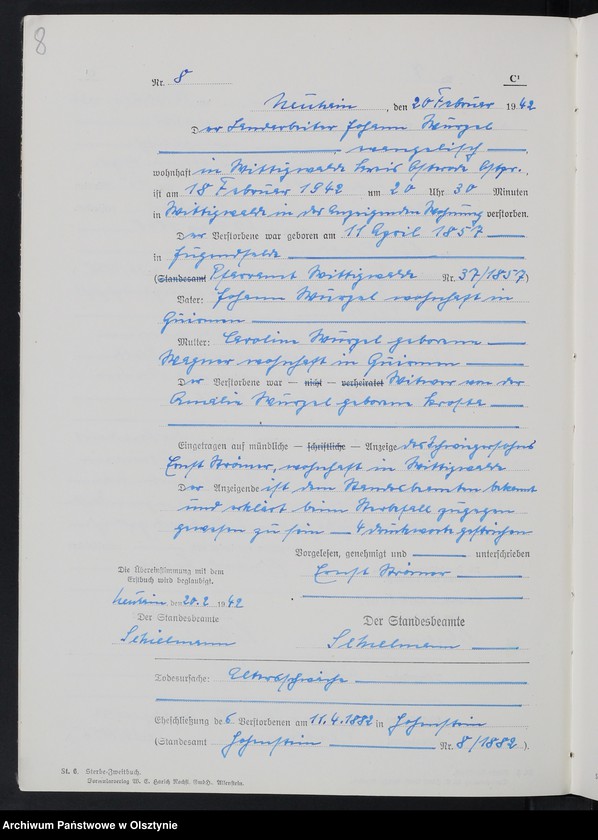 8
Nr. 8
C¹
Neuhain, den 20 Februar 1942
Der Landarbeiter Johann Würzel
evangelisch
wohnhaft in Wittigwalde Kreis Osterode Ostpr.
ist am 18 Februar 1942 um 20 Uhr 30 Minuten
in Wittigwalde in der Anzeigenden Wohnung verstorben.
Der Verstorbene war geboren am 11 April 1857
in Jugendfelde
(Standesamt Pfarramt Wittigwalde Nr. 37/1857)
Vater: Johann Würzel wohnhaft in
Mutter: Caroline Würzel geborene
Wagner wohnhaft in
Der Verstorbene war — nicht — verheiratet Witwer von der
Amalie Würzel geborene
Eingetragen auf mündliche — schriftliche — Anzeige des Schwiegersohns
Ernst Strömer, wohnhaft in Wittigwalde
Der Anzeigende ist dem Standesbeamten bekannt
und erklärt beim Sterbefall zugegen
gewesen zu sein — 4 Druckworte gestrichen
Vorgelesen, genehmigt und unterschrieben
Ernst Strömer
Die Übereinstimmung mit dem
Erstbuch wird beglaubigt.
Neuhain, den 20.2. 1942
Der Standesbeamte
Schielmann
Der Standesbeamte
Schielmann
Todesursache: Altersschwäche
Eheschließung des Verstorbenen am 11.4.1882 in Hohnstein
(Standesamt Hohnstein Nr. 8/1882).
St. 6. Sterbe-Zweitbuch.
Vordruckverlag W. E. Harich Nachf. GmbH. Allenstein.
Archiwum Państwowe w Olsztynie